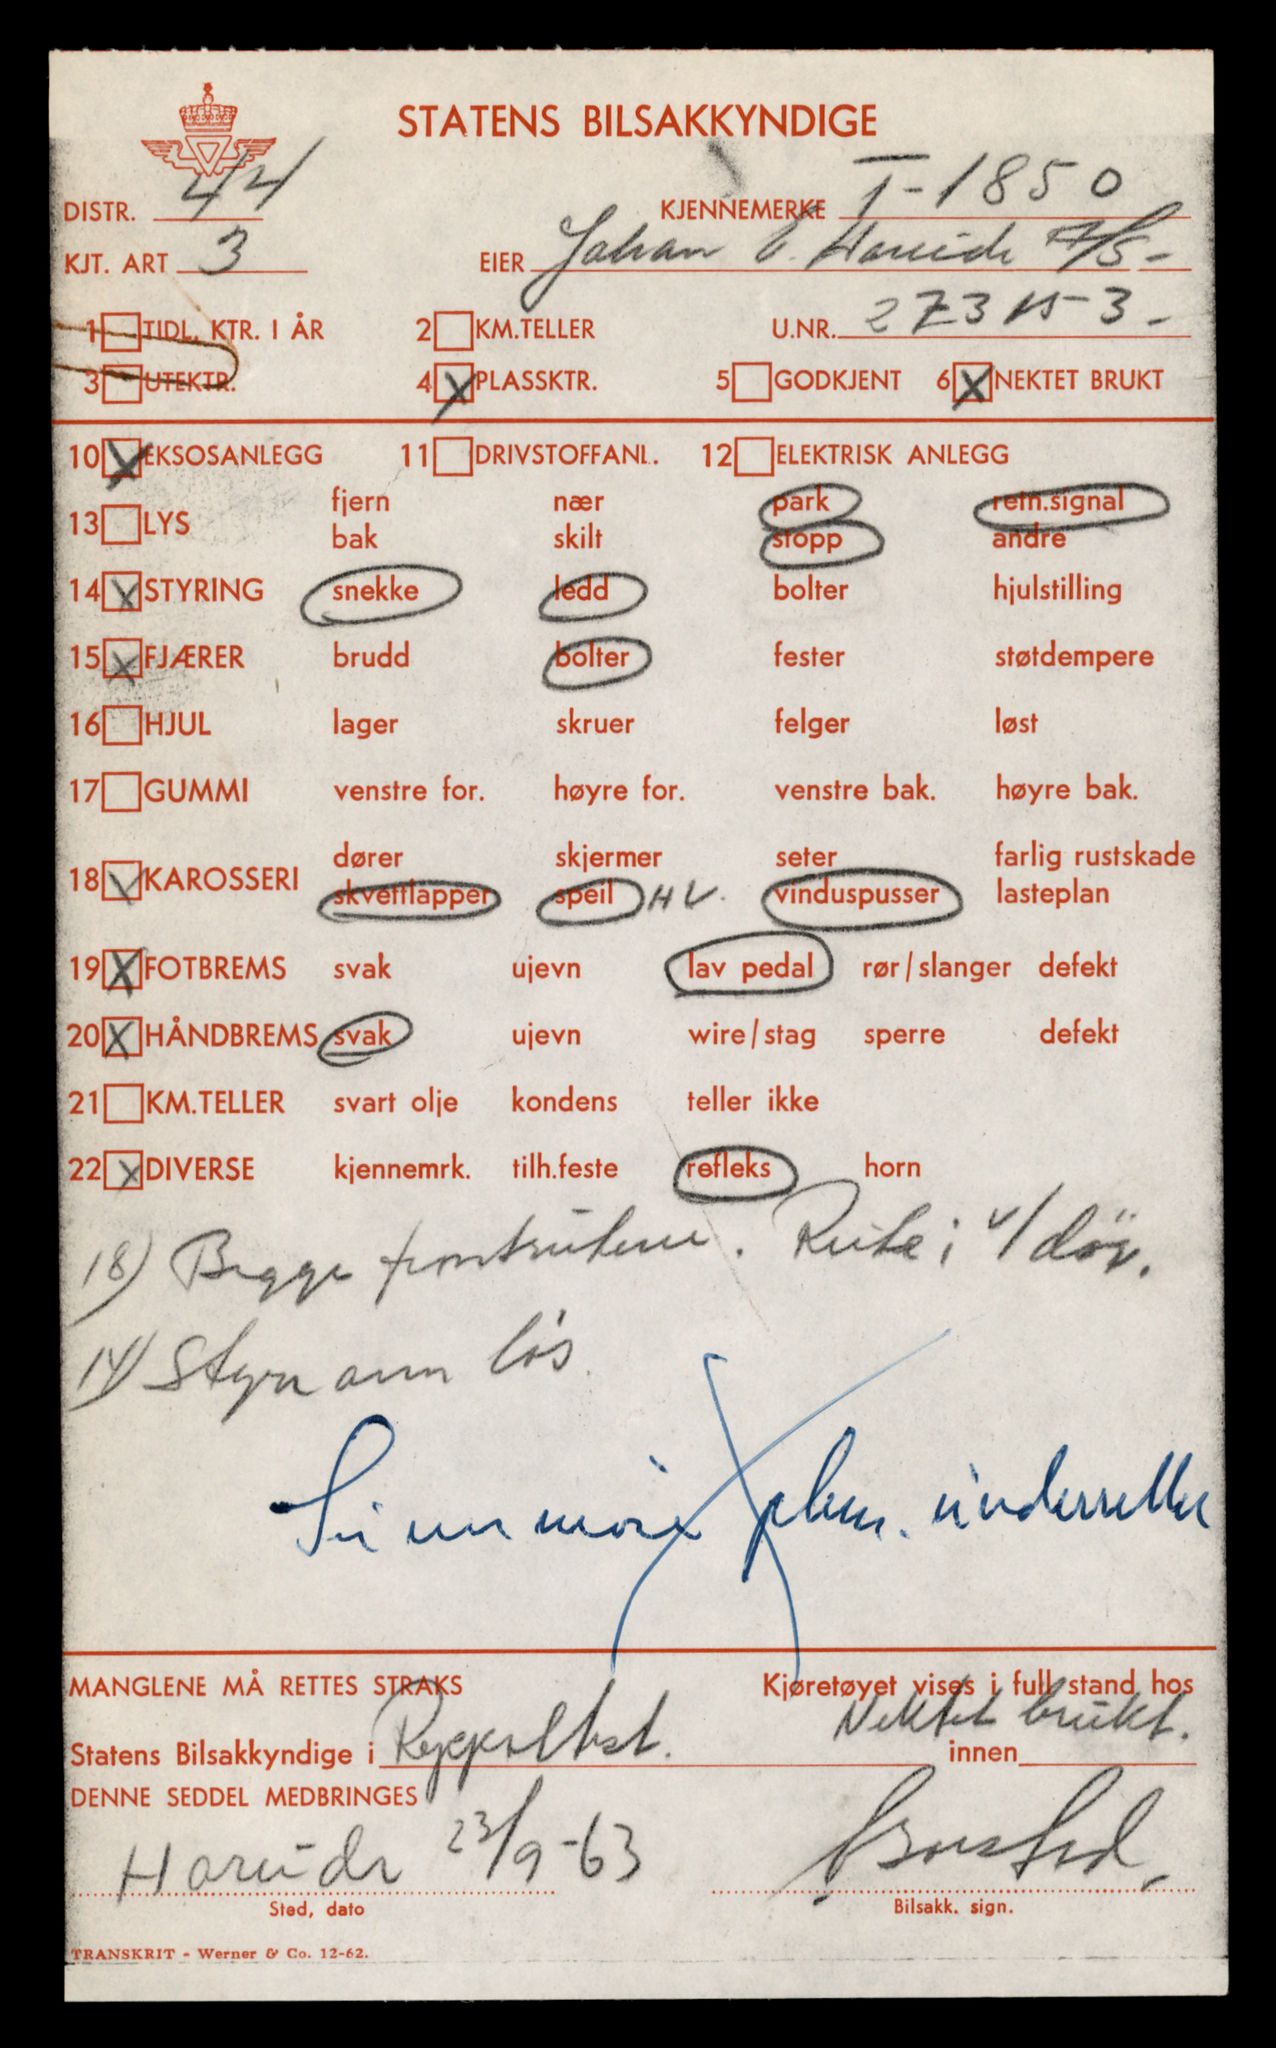 STATENS BILSAKKYNDIGE
DISTR. 44
KJENNEMERKE T-1850
KJT. ART 3
EIER Johan E. Hareide A/S-
1 TIDL. KTR. I ÅR 2 KM.TELLER U.NR. 273153-
3 UTEKTR. 4 X PLASSKTR. 5 GODKJENT 6 X NEKTET BRUKT
10 X EKSOSANLEGG 11 DRIVSTOFFANL. 12 ELEKTRISK ANLEGG
fjern nær park retn.signal
13 LYS
bak skilt stopp andre
14 X STYRING snekke ledd bolter hjulstilling
15 X FJÆRER brudd bolter fester støtdempere
16 HJUL lager skruer felger løst
17 GUMMI venstre for. høyre for. venstre bak. høyre bak.
dører skjermer seter farlig rustskade
18 KAROSSERI
skvettlapper speil H V. vinduspusser lasteplan
19 X FOTBREMS svak ujevn lav pedal rør/slanger defekt
20 X HÅNDBREMS svak ujevn wire/stag sperre defekt
21 KM.TELLER svart olje kondens teller ikke
22 X DIVERSE kjennemrk. tilh.feste refleks horn
18) Begge frontrutene. Rute i v/dör.
14) Styrearm lös.
underretter
MANGLENE MÅ RETTES STRAKS Kjøretøyet vises i full stand hos
Nektet brukt.
Statens Bilsakkyndige i innen
DENNE SEDDEL MEDBRINGES
Hareide 23/9-63
Sted, dato Bilsakk. sign.
TRANSKRIT - Werner & Co. 12-62.